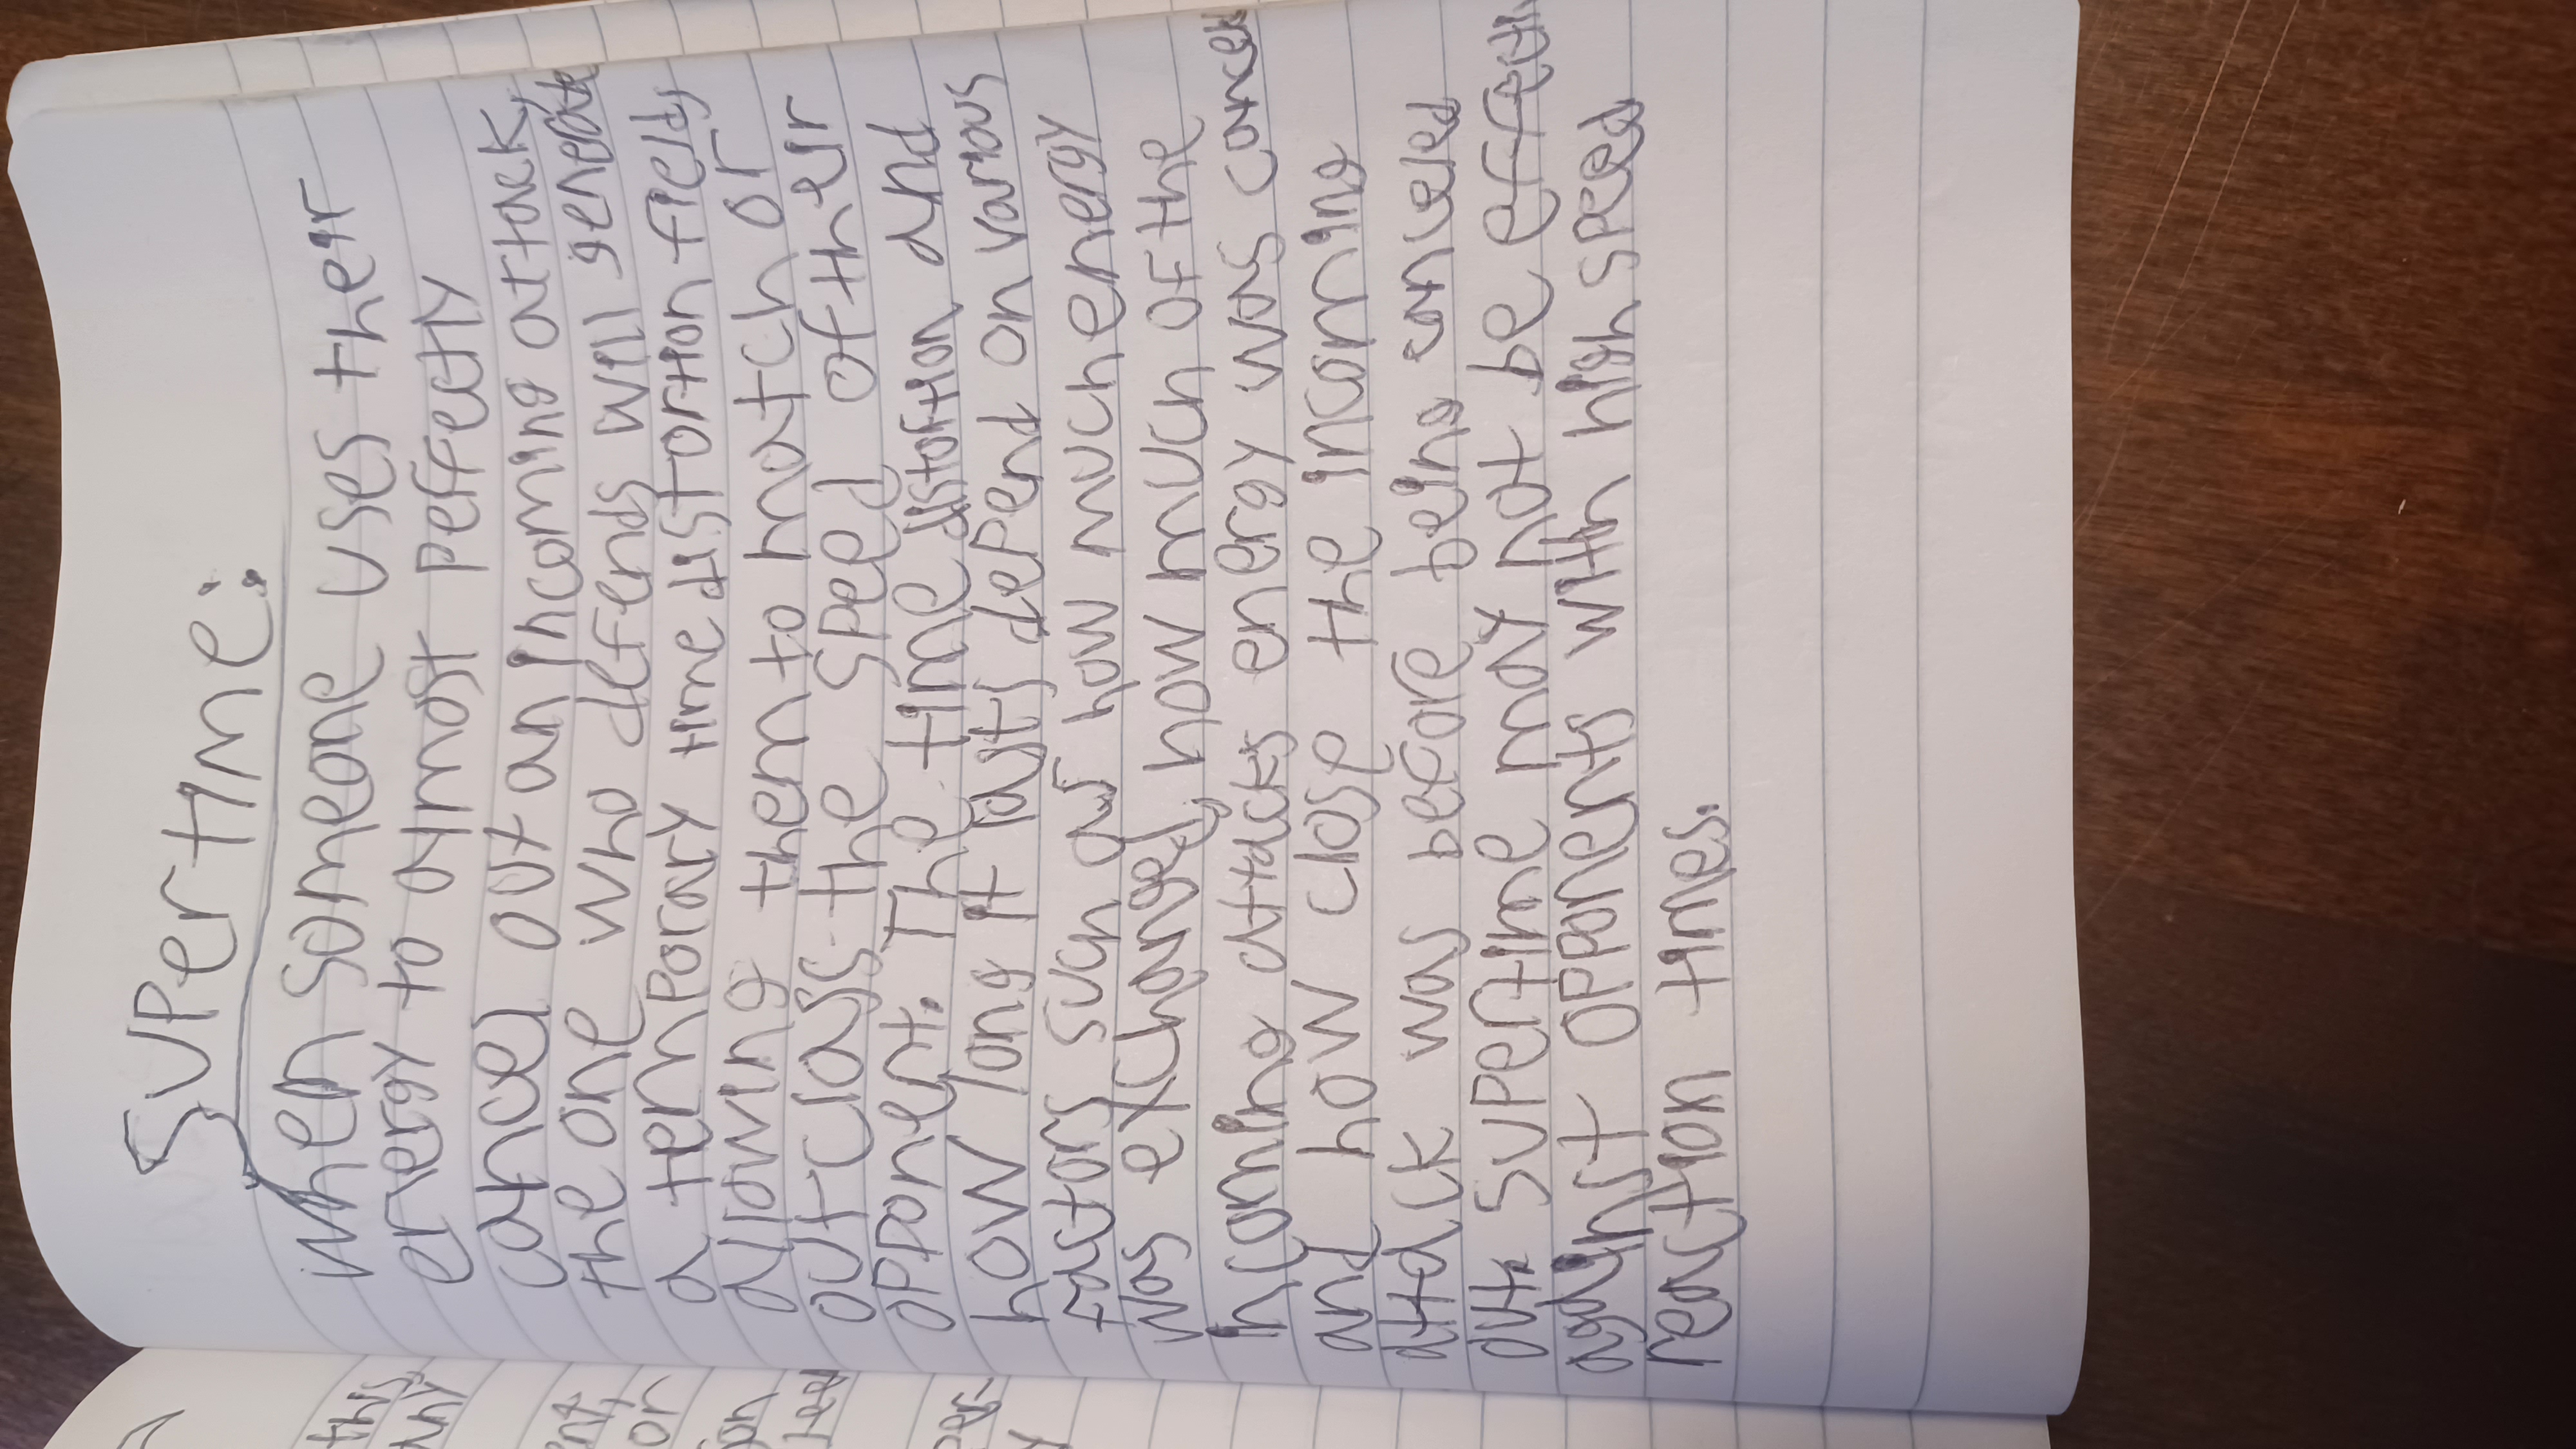 Supertime:
When someone uses their
energy to almost perfectly
cancel out an incoming attack,
the one who defends will generate
a temporary time distortion field,
allowing them to match or
outclass the speed of their
opponent. The time distortion and
how long it lasts depend on various
factors such as how much energy
was exchanged, how much of the
incoming attacks energy was cancel
and how close the incoming
attack was before being canceled
out. Supertime may not be effecti
against opponents with high speed
reaction times.
this
any
ent,
or
son
per-
y